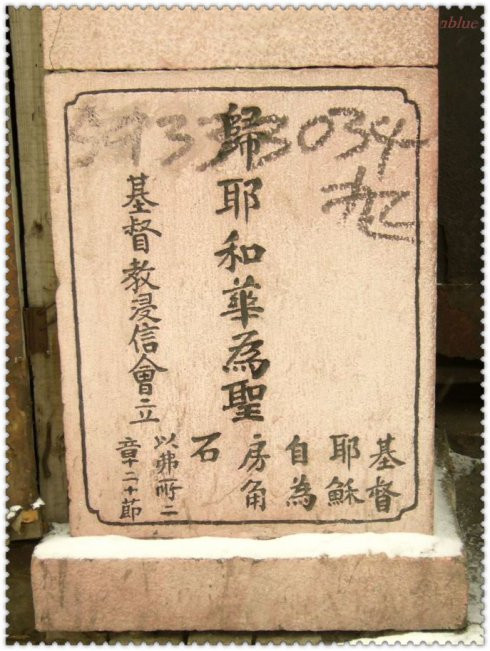 歸耶和華為聖
基督
耶穌
自為
房角
石
以弗所二
章二十節
基督教浸信會立